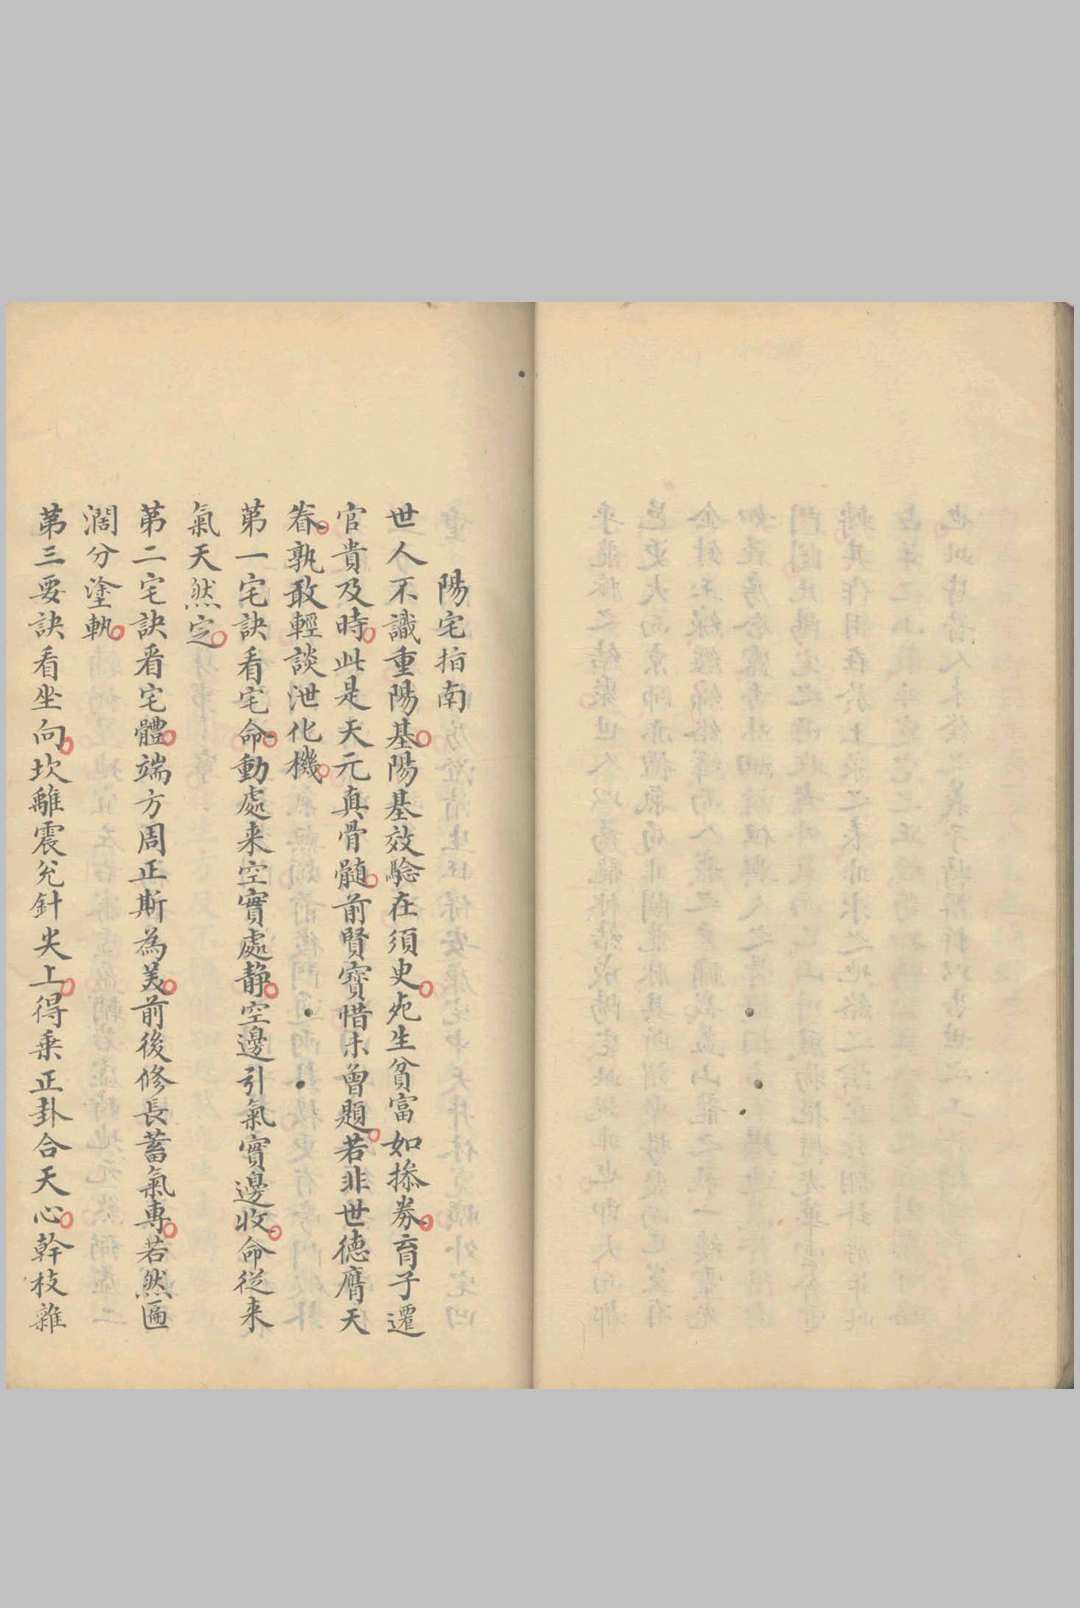 陽宅指南
世人不識重陽基陽基效驗在須臾死生貧富如捺券育子遷
官貴及時此是天元真骨髓前賢寶惜未曾題若非世德膺天
眷孰敢輕談泄化機
第一宅訣看宅命動處来空實處靜空邊引氣實邊收命從来
氣天然定
第二宅訣看宅體端方周正斯為美前後修長蓄氣專若然匾
濶分塗軌
第三要訣看坐向坎離震兌針尖上得乗正卦合天心幹枝雜